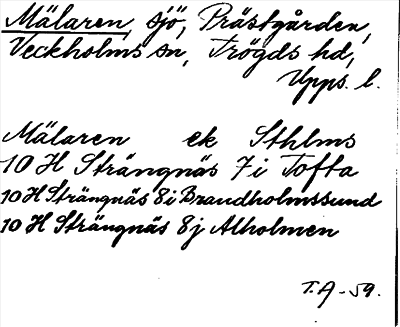 Mälaren, sjö, Prästgården,
Veckholms sn, Trögds hd,
Upps. l.
Mälaren ek Sthlms
10 H Strängnäs 7i Tofta
10 H Strängnäs 8i Brandholmssund
10 H Strängnäs 8j Alholmen
T.A-59.